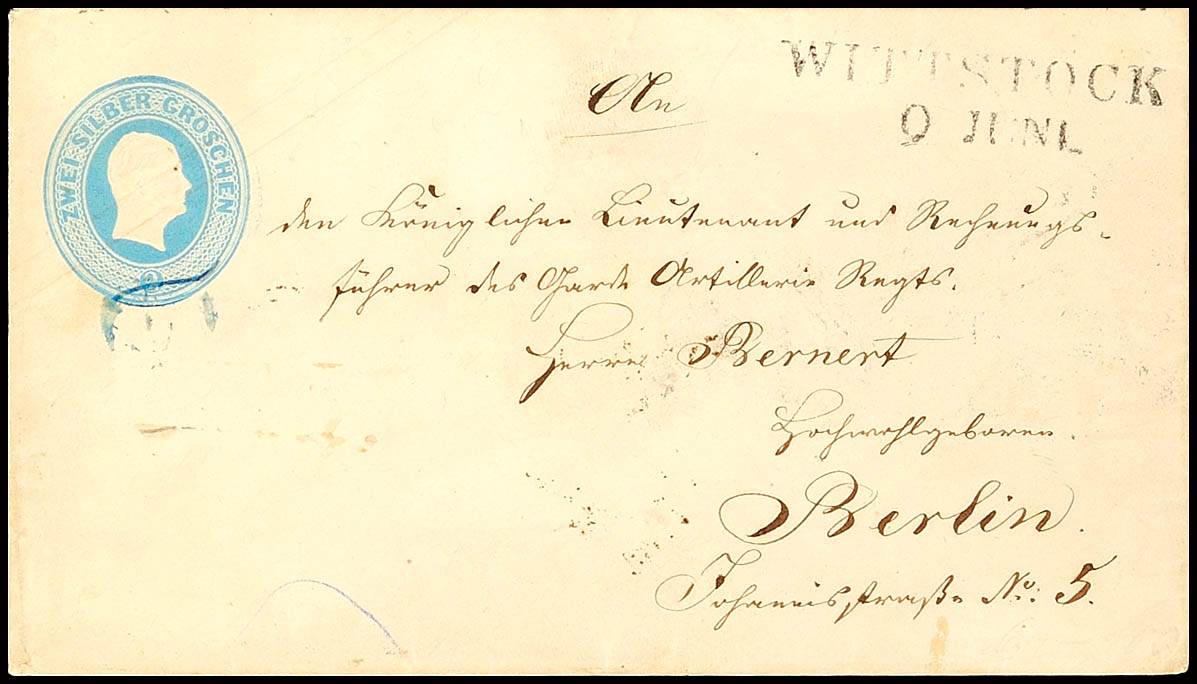 ZWEI SILBER GROSCHEN.
2
WITTSTOCK
9 JUNI
An
den Königlichen Lieutenant und Rechnungs-
führer des Garde Artillerie Regts.
Herrn Bernert
Hochwohlgeboren.
Berlin.
Johannisstraße No: 5.